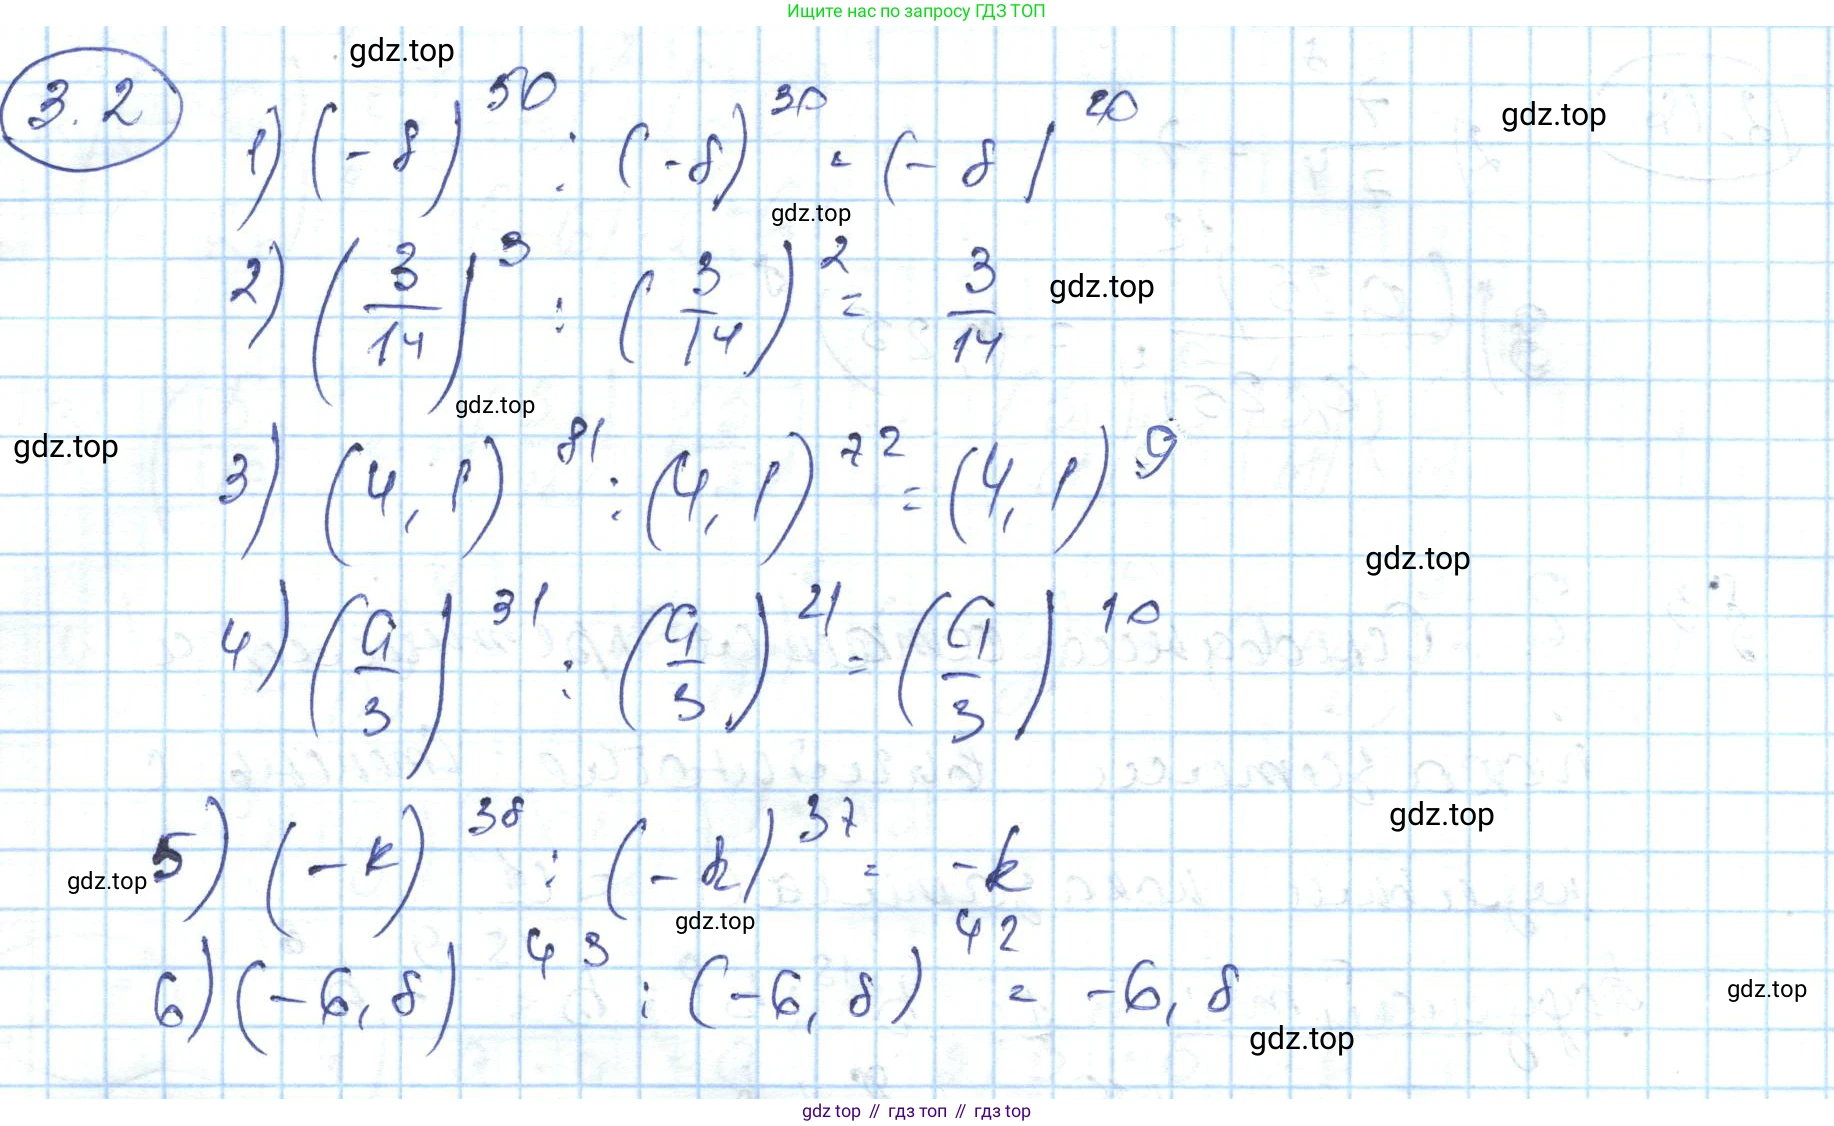 Ищите нас по запросу ГДЗ ТОП
gdz.top
3.2
1) (-8)^50 : (-8)^30 = (-8)^20
gdz.top
gdz.top
2) (3/14)^3 : (3/14)^2 = 3/14
gdz.top
gdz.top
gdz.top
3) (4,1)^81 : (4,1)^72 = (4,1)^9
gdz.top
4) (a/3)^31 : (a/3)^21 = (a/3)^10
gdz.top
5) (-k)^38 : (-k)^37 = -k
gdz.top
gdz.top
6) (-6,8)^43 : (-6,8)^42 = -6,8
gdz.top
gdz.top
gdz top // гдз топ // gdz top